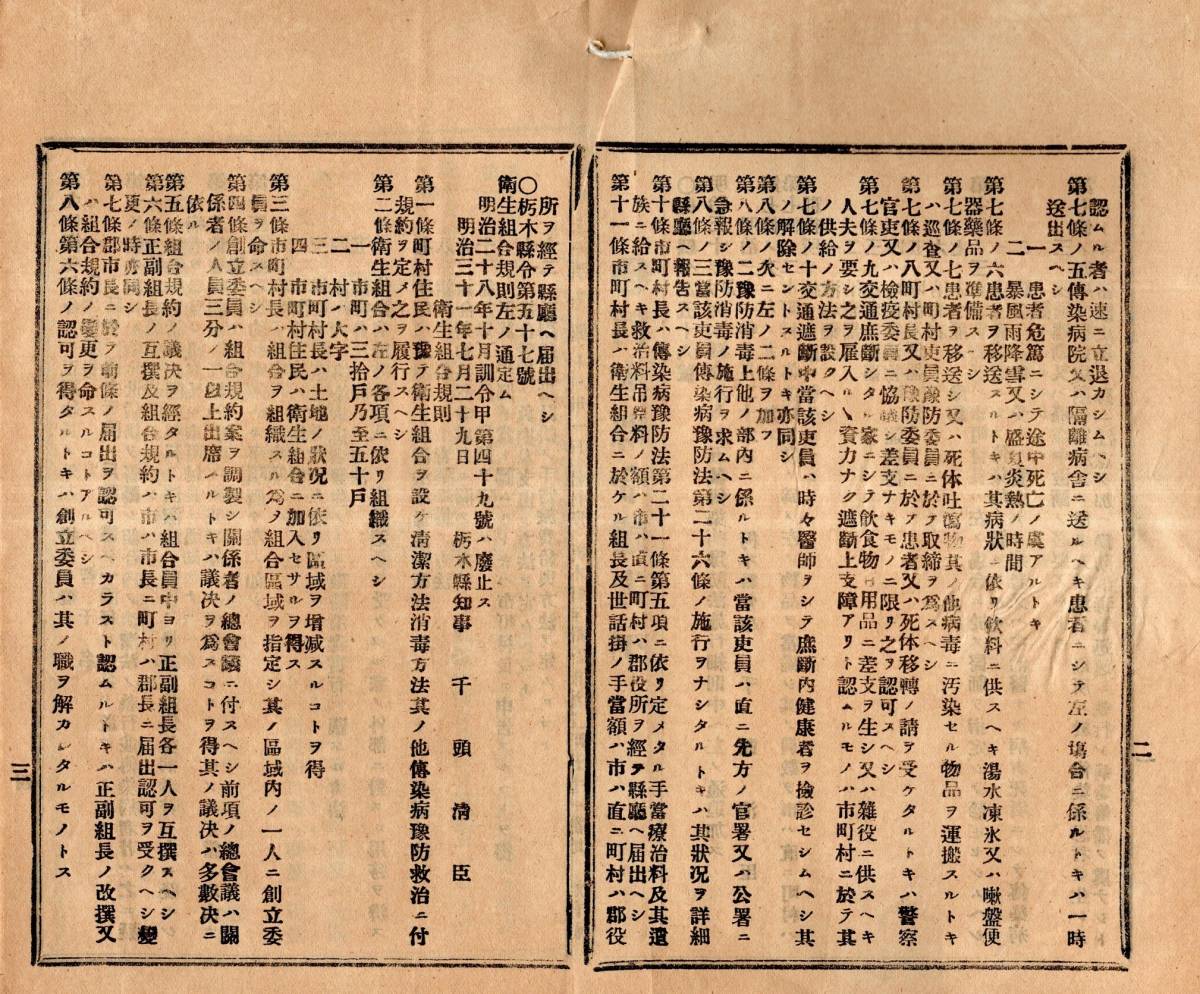 二
認ムル者ハ速ニ立退カシムヘシ
第七條ノ五傳染病院又ハ隔離病舎ニ送ルヘキ患者ニシテ左ノ塲合ニ係ルトキハ一時
送出スヘシ
一　患者危篤ニシテ途中死亡ノ虞アルトキ
二　暴風雨降雪又ハ盛夏炎熱ノ時間
第七條ノ六患者ヲ移送スルトキハ其病狀ニ依リ飲料ニ供スヘキ湯水凍氷又ハ嗽盤便
器藥品ヲ準備スヘシ
第七條ノ七患者ヲ移送シ又ハ死体吐瀉物其ノ他病毒ニ汚染セル物品ヲ運搬スルトキ
ハ巡査又ハ町村吏員豫防委員ニ於テ取締ヲ爲スヘシ
第七條ノ八町村長又ハ豫防委員ニ於テ患者又ハ死体移轉ノ請ヲ受ケタルトキハ警察
官吏又ハ檢疫委員ニ協議シ差支ナキモノニ限リ之ヲ認可スヘシ
第七條ノ九交通庶斷シタル家ニシテ飲食物日用品ニ差支ヲ生シ又ハ雜役ニ供スヘキ
人夫ヲ要シ之ヲ雇入ルヽ資力ナク遮斷上支障アリト認ムルモノハ市町村ニ於テ其
ノ供給ノ方法ヲ設クヘシ
第七條ノ十交通遮斷中當該吏員ハ時々醫師ヲシテ庶斷内健康者ヲ檢診セシムヘシ其
ノ解除セントスルトキ亦同シ
第八條ノ次ニ左ノ二條ヲ加フ
第八條ノ二豫防消毒上他ノ部内ニ係ルトキハ當該吏員ハ直ニ先方ノ官署又ハ公署ニ
急報シ豫防消毒ノ施行ヲ求ムヘシ
第八條ノ三當該吏員傳染病豫防法第二十六條ノ施行ヲナシタルトキハ其狀況ヲ詳細
縣廳ヘ報告スヘシ
第十條市町村長ハ傳染病豫防法第二十一條第五項ニ依リ定メタル手當療治料及其遺
族ニ給スヘキ救治料吊祭料ノ額ハ市ハ直ニ町村ハ郡役所ヲ經テ縣廳ヘ届出ヘシ
第十一條市町村長ハ衛生組合ニ於ケル組長及世話掛ノ手當額ハ市ハ直ニ町村ハ郡役
所ヲ經テ縣廳ヘ届出ヘシ
〇栃木縣令第五十七號
衛生組合規則左ノ通定ム
明治二十八年十月訓令甲第四十九號ハ廢止ス
明治三十一年七月二十九日　栃木縣知事　千頭淸臣
衛生組合規則
第一條町村住民ハ豫テ衛生組合ヲ設ケ清潔方法消毒方法其ノ他傳染病豫防救治ニ付
規約ヲ定メ之ヲ履行スヘシ
第二條衛生組合ハ左ノ各項ニ依リ組織スヘシ
一　市町ハ三拾戸乃至五十戸
二　村ハ大字
三　市町村長ハ土地ノ狀況ニ依リ區域ヲ增減スルコトヲ得
四　市町村住民ハ衛生組合ニ加入セサルヲ得ス
第三條市町村長ハ組合ヲ組織スル爲メ組合區域ヲ指定シ其ノ區域内ノ一人ニ創立委
員ヲ命スヘシ
第四條創立委員ハ組合規約案ヲ調製シ關係者ノ總會議ニ付スヘシ前項ノ總會議ハ關
係者ノ人員三分ノ一以上出席スルトキハ議決ヲ爲スコトヲ得其ノ議決ハ多數決ニ
依ル
第五條組合規約ノ議決ヲ經タルトキハ組合員中ヨリ正副組長各一人ヲ互撰スヘシ
第六條正副組長ノ互撰及組合規約ハ市ハ市長ニ町村ハ郡長ニ届出認可ヲ受クヘシ變
更ノ時亦同シ
第七條郡市長ニ於テ前條ノ届出ヲ認可スヘカラスト認ムルトキハ正副組長ノ改撰又
ハ組合規約ノ變更ヲ命スルコトアルヘシ
第八條第六條ノ認可ヲ得タルトキハ創立委員ハ其ノ職ヲ解カレタルモノトス
三